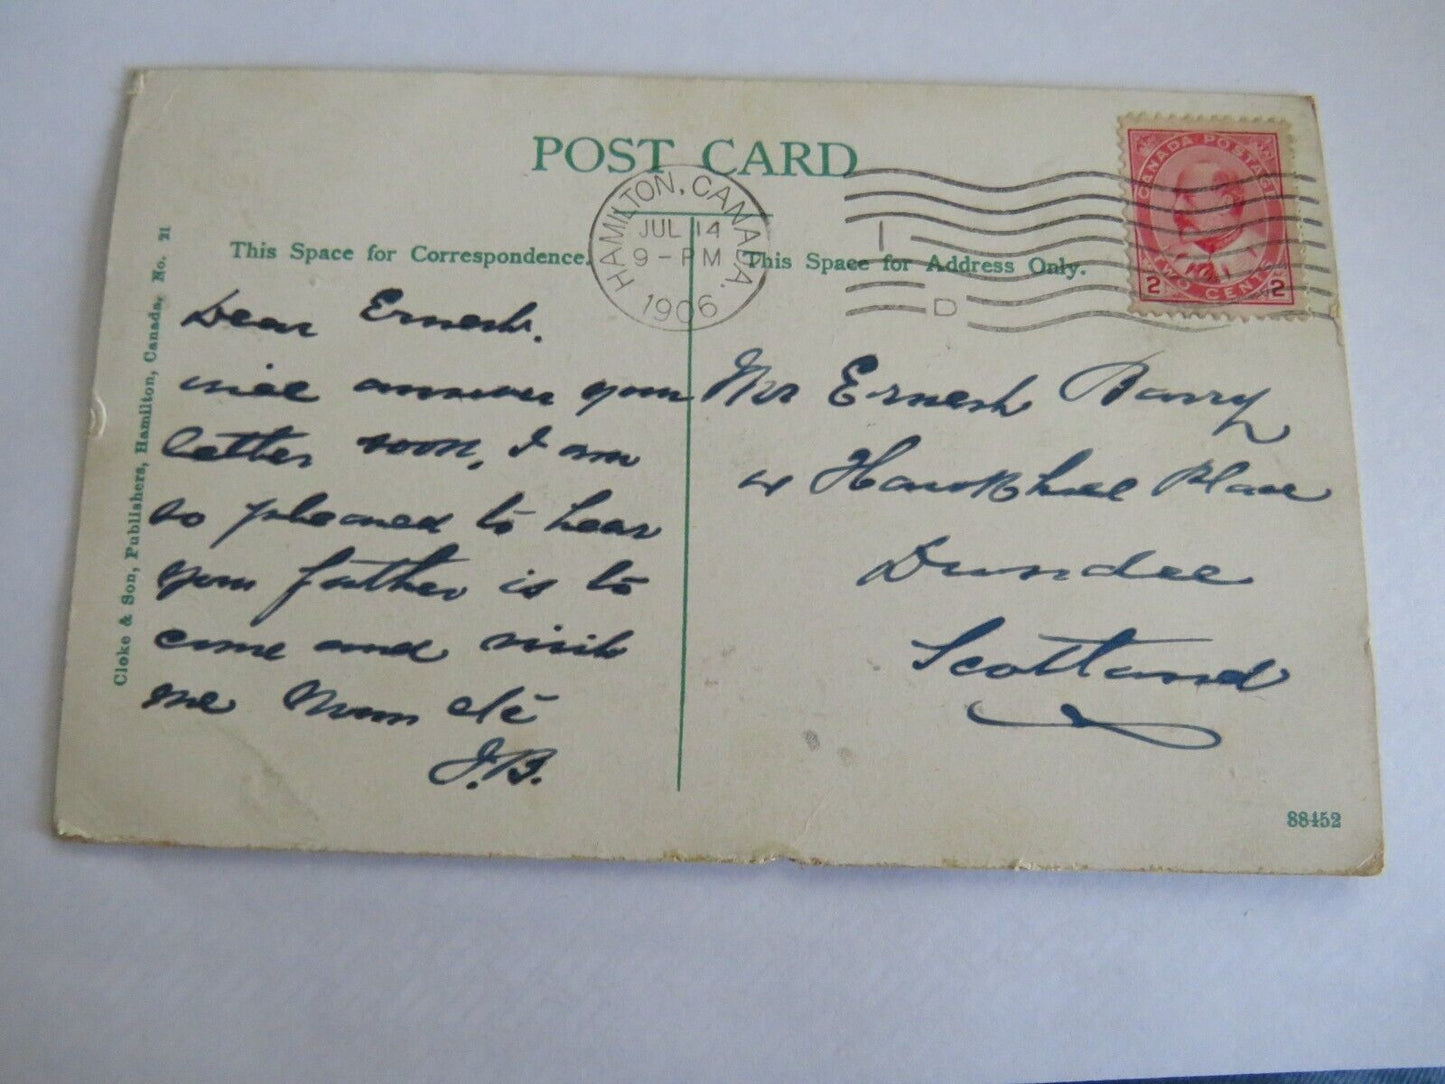 POST CARD
HAMILTON, CANADA.
JUL 14
9 - PM
1906
I
D
CANADA POSTAGE
2 TWO CENTS 2
This Space for Correspondence.
This Space for Address Only.
Cloke & Son, Publishers, Hamilton, Canada, No. 21
Dear Ernest.
will answer your
letter soon, I am
so pleased to hear
your father is to
come and visit
me
J.B.
Mr Ernest Barry
4 Place
Dundee
Scotland
88452